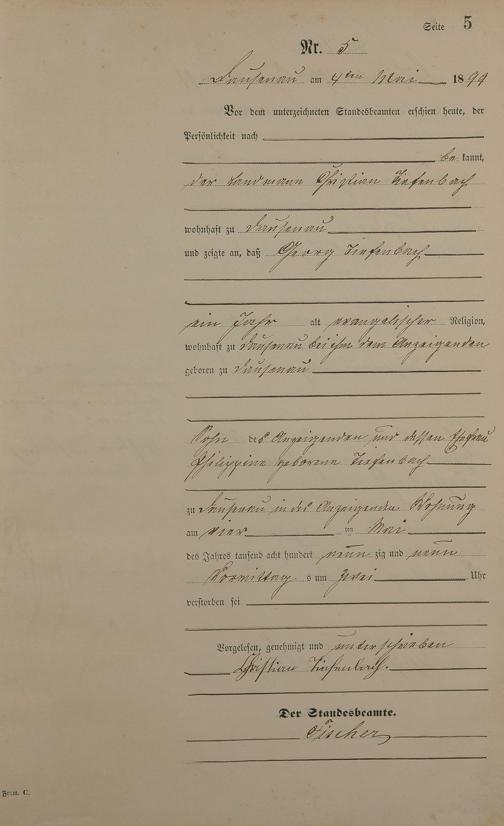 Seite 5
Nr. 5
Dausenau am 4ten Mai 1899
Vor dem unterzeichneten Standesbeamten erschien heute, der
Persönlichkeit nach
be kannt,
der Landmann Christian Tiefenbach
wohnhaft zu Dausenau
und zeigte an, daß Georg Tiefenbach
ein Jahr alt evangelischer Religion,
wohnhaft zu Dausenau bei ihm dem Anzeigenden
geboren zu Dausenau
Sohn des Anzeigenden und dessen Ehefrau
Philippine geborene Tiefenbach
zu Dausenau in des Anzeigenden Wohnung
am vier ten Mai
des Jahres tausend acht hundert neun zig und neun
Vormittag s um zwei Uhr
verstorben sei
Vorgelesen, genehmigt und unterschrieben
Christian Tiefenbach.
Der Standesbeamte.
Fischer
Form. C.